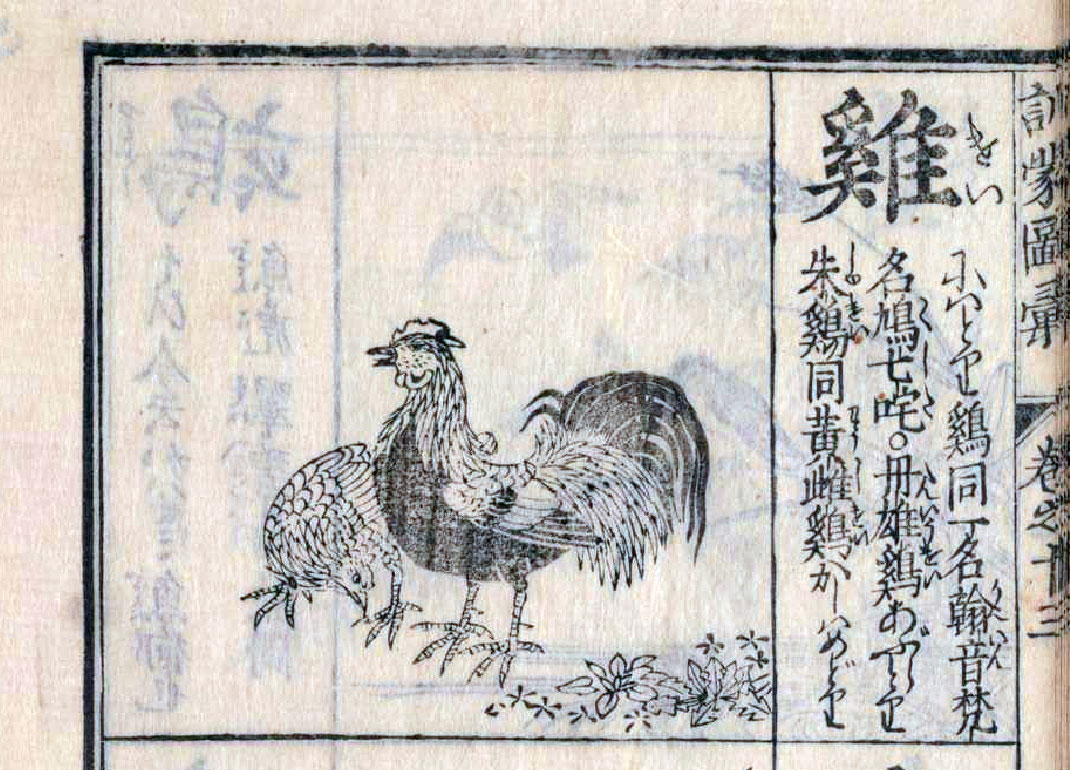 訓蒙圖彙 巻之十三
雞
けい
にはとり鷄同一名翰音梵
名鳩七咤。丹雄鷄
朱鷄同黄雌鷄かしはめどり